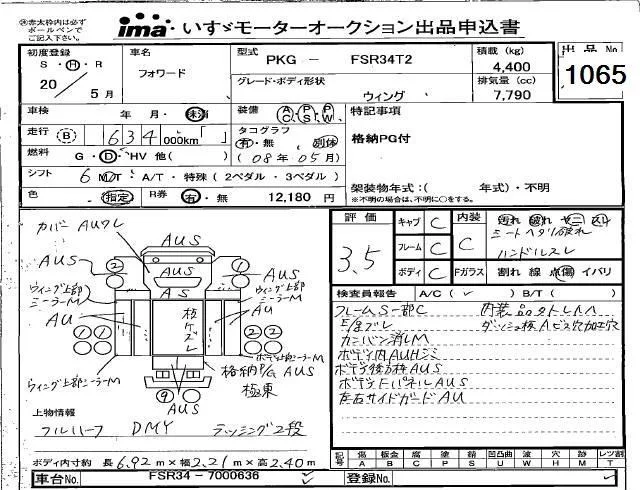 ※赤太枠内は必ず
ボールペンで
ご記入下さい。
ima いすゞモーターオークション出品申込書
初度登録
S・H・R
20 / 5月
車名
フォワード
型式
PKG － FSR34T2
グレード・ボディ形状
ウィング
積載 (kg)
4,400
排気量 (cc)
7,790
出品 No
1065
車検 年 月・抹消
装備 AC PS PW
特記事項
格納PG付
走行 B 634 000km「 」
タコグラフ
有・無 別体
(08年05月)
燃料 G・D・HV 他( )
シフト 6 M/T・A/T・特殊(2ペダル・3ペダル)
色 指定 R券 有・無 12,180 円
架装物年式:( 年式)・不明
※不明の場合は、不明に○をする。
評価
3.5
キャブ C
フレーム C
ボディ C
内装 C
汚れ 破れ ヤニ スレ
シートヘタリ破れ
ハンドルスレ
Fガラス 割れ 線 点 傷 イバリ
カバーAUワレ
AUS
AUS
AUS
AUS
AS
2
1
ウィング上部
シーラーM
AU
ウィング上部
シーラーM
AU
ウィング上部シーラーM
格納P/G AUS
極東
9
AUS
上物情報
フルハーフ DMY ラッシング2段
ボディ内寸約 長 6.92 m×幅 2.21 m×高 2.40 m
検査員報告 A/C(✓) B/T( )
フレームS一部C
カンバン消しM
ボデー内AUHシミ
ボデー後方枠AUS
ボデー下パネルAUS
左右サイドガードAU
記号 傷 A 板金 B 腐 C 塗 P 錆 S 凹凸曲 U 波 W 穴 H 跡 M レツ割 T
車台No. FSR34－7000636
登録No.